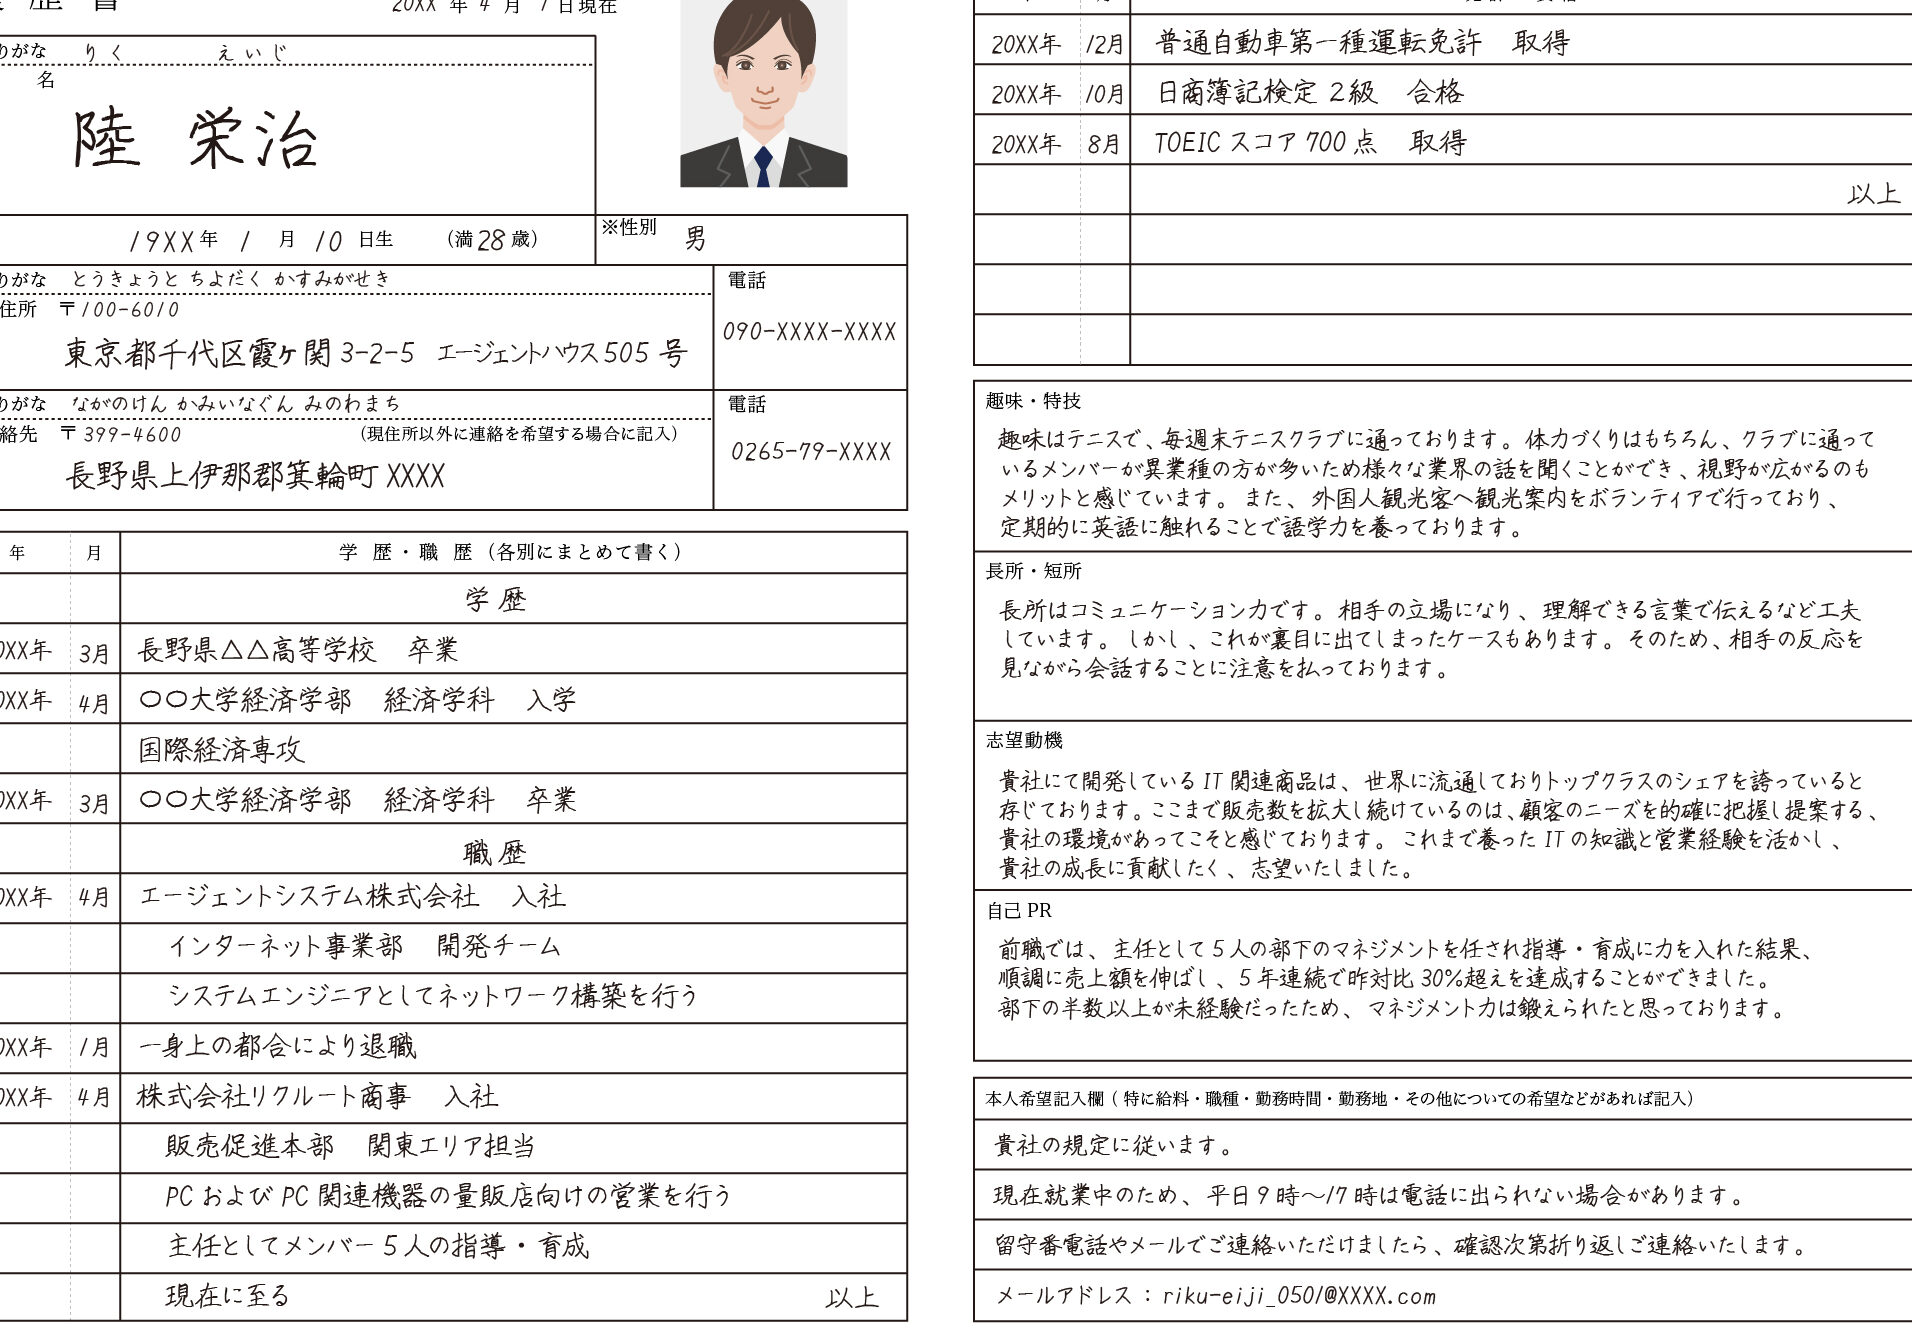 歴 書
20XX 年 4 月 1 日現在
りがな りく えいじ
名
陸 栄治
19XX 年 1 月 10 日生 (満 28 歳)
※性別 男
りがな とうきょうと ちよだく かすみがせき
電話
住所 〒100-6010
090-XXXX-XXXX
東京都千代区霞ヶ関 3-2-5 エージェントハウス505 号
りがな ながのけん かみいなぐん みのわまち
電話
絡先 〒399-4600 (現住所以外に連絡を希望する場合に記入)
0265-79-XXXX
長野県上伊那郡箕輪町 XXXX
年 月 学 歴・職 歴(各別にまとめて書く)
学 歴
0XX年 3月 長野県△△高等学校 卒業
0XX年 4月 〇〇大学経済学部 経済学科 入学
国際経済専攻
0XX年 3月 〇〇大学経済学部 経済学科 卒業
職 歴
0XX年 4月 エージェントシステム株式会社 入社
インターネット事業部 開発チーム
システムエンジニアとしてネットワーク構築を行う
0XX年 1月 一身上の都合により退職
0XX年 4月 株式会社リクルート商事 入社
販売促進本部 関東エリア担当
PC および PC 関連機器の量販店向けの営業を行う
主任としてメンバー 5 人の指導・育成
現在に至る
以上
20XX年 12月 普通自動車第一種運転免許 取得
20XX年 10月 日商簿記検定 2級 合格
20XX年 8月 TOEIC スコア 700 点 取得
以上
趣味・特技
趣味はテニスで、毎週末テニスクラブに通っております。体力づくりはもちろん、クラブに通って
いるメンバーが異業種の方が多いため様々な業界の話を聞くことができ、視野が広がるのも
メリットと感じています。また、外国人観光客へ観光案内をボランティアで行っており、
定期的に英語に触れることで語学力を養っております。
長所・短所
長所はコミュニケーション力です。相手の立場になり、理解できる言葉で伝えるなど工夫
しています。しかし、これが裏目に出てしまったケースもあります。そのため、相手の反応を
見ながら会話することに注意を払っております。
志望動機
貴社にて開発している IT 関連商品は、世界に流通しておりトップクラスのシェアを誇っていると
存じております。ここまで販売数を拡大し続けているのは、顧客のニーズを的確に把握し提案する、
貴社の環境があってこそと感じております。これまで養った IT の知識と営業経験を活かし、
貴社の成長に貢献したく、志望いたしました。
自己 PR
前職では、主任として 5 人の部下のマネジメントを任され指導・育成に力を入れた結果、
順調に売上額を伸ばし、5 年連続で昨対比 30%超えを達成することができました。
部下の半数以上が未経験だったため、マネジメント力は鍛えられたと思っております。
本人希望記入欄(特に給料・職種・勤務時間・勤務地・その他についての希望などがあれば記入)
貴社の規定に従います。
現在就業中のため、平日 9 時〜17 時は電話に出られない場合があります。
留守番電話やメールでご連絡いただけましたら、確認次第折り返しご連絡いたします。
メールアドレス:riku-eiji_0501@XXXX.com